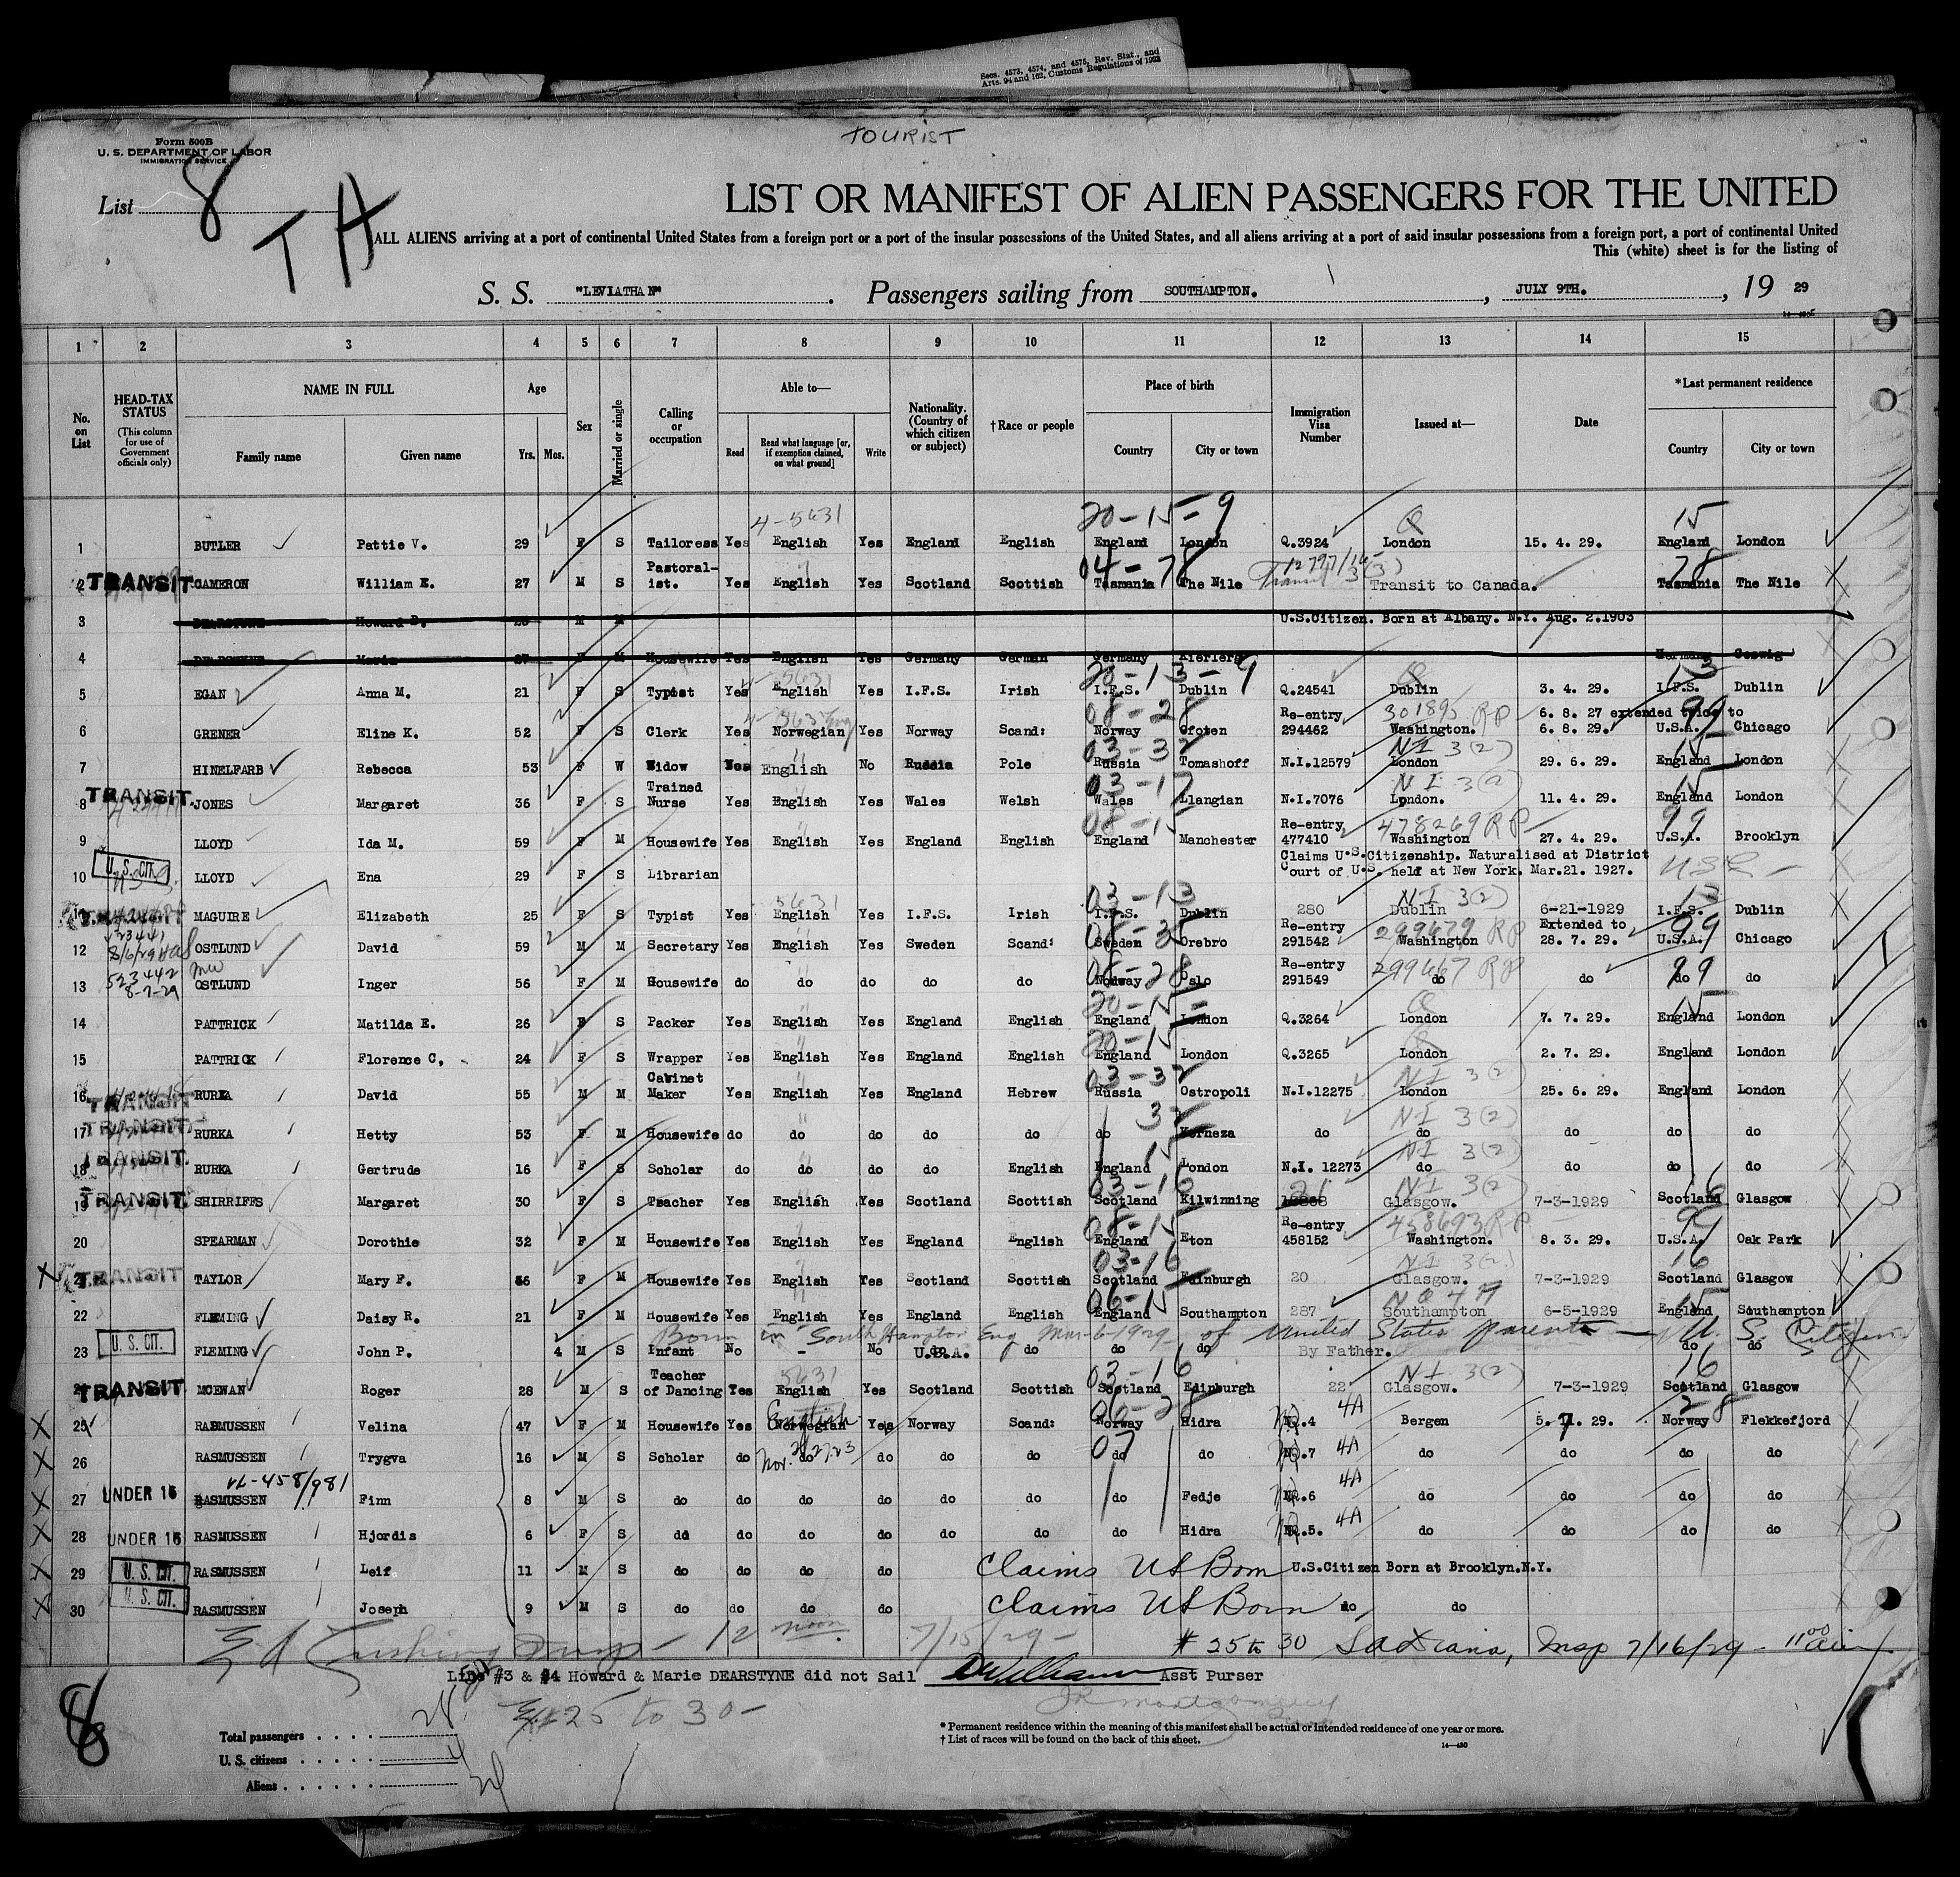 Secs. 4573, 4574, and 4575, Rev. Stat., and
Arts. 94 and 162, Customs Regulations of 1923
TOURIST
Form 500B
U. S. DEPARTMENT OF LABOR
IMMIGRATION SERVICE
List 8
T A
LIST OR MANIFEST OF ALIEN PASSENGERS FOR THE UNITED
ALL ALIENS arriving at a port of continental United States from a foreign port or a port of the insular possessions of the United States, and all aliens arriving at a port of said insular possessions from a foreign port, a port of continental United
This (white) sheet is for the listing of
S. S. "LEVIATHAN". Passengers sailing from SOUTHAMPTON., JULY 9TH., 19 29
1 2 3 4 5 6 7 8 9 10 11 12 13 14 15
No. on List
HEAD-TAX STATUS (This column for use of Government officials only)
NAME IN FULL Family name Given name
Age Yrs. Mos.
Sex
Married or single
Calling or occupation
Able to— Read Read what language [or, if exemption claimed, on what ground] Write
Nationality. (Country of which citizen or subject)
†Race or people
Place of birth Country City or town
Immigration Visa Number
Issued at—
Date
*Last permanent residence Country City or town
4-5631 20-15-9 Q 15
1 BUTLER Pattie V. 29 F S Tailoress Yes English Yes England English England London Q.3924 London 15. 4. 29. England London
04-78 78
2 TRANSIT CAMERON William E. 27 M S Pastoral-ist. Yes English Yes Scotland Scottish Tasmania The Nile Transit to Canada. Tasmania The Nile
3 DEARSTYNE Howard B. M M U.S.Citizen. Born at Albany. N.Y. Aug. 2.1903
4 DEARSTYNE Marie 27 F M Housewife Yes English Yes Germany German Germany Germany
5631 20-13-9 Q 13
5 EGAN Anna M. 21 F S Typist Yes English Yes I.F.S. Irish I.F.S. Dublin Q.24541 Dublin 3. 4. 29. I.F.S. Dublin
08-28 301895 RP 99
6 GRENER Eline K. 52 F S Clerk Yes Norwegian Yes Norway Scand: Norway Ofoten Re-entry 294462 Washington. 6. 8. 27 extended twice to 6. 8. 29. U.S.A. Chicago
03-32 NI 3(2) 15
7 HINELFARB Rebecca 53 F W Widow English No Russia Pole Russia Tomashoff N.I.12579 London 29. 6. 29. England London
03-17 NI 3(2) 15
8 TRANSIT. JONES Margaret 36 F S Trained Nurse Yes English Yes Wales Welsh Wales Llangian N.I.7076 London. 11. 4. 29. England London
08-15 478269 RP 99
9 LLOYD Ida M. 59 F M Housewife Yes English Yes England English England Manchester Re-entry 477410 Washington 27. 4. 29. U.S.A. Brooklyn
10 U. S. CIT. LLOYD Ena 29 F S Librarian Claims U.S.Citizenship. Naturalised at District Court of U.S. held at New York. Mar.21. 1927.
5631 03-13 NI 3(2) 13
MAGUIRE Elizabeth 25 F S Typist Yes English Yes I.F.S. Irish I.F.S. Dublin 280 Dublin 6-21-1929 I.F.S. Dublin
299679 RP 99
12 OSTLUND David 59 M M Secretary Yes English Yes Sweden Scand: Sweden Orebro Re-entry 291542 Washington Extended to 28. 7. 29. U.S.A. Chicago
523442 8-2-29 08-28 299667 RP 99
13 OSTLUND Inger 56 F M Housewife do do do do do Norway Oslo Re-entry 291549 do do do do
20-15 Q 15
14 PATTRICK Matilda E. 26 F S Packer Yes English Yes England English England London Q.3264 London 7. 7. 29. England London
20-15
15 PATTRICK Florence C. 24 F S Wrapper Yes English Yes England English England London Q.3265 London 2. 7. 29. England London
03-32 NI 3(2)
16 TRANSIT RURKA David 55 M M Cabinet Maker Yes English Yes England Hebrew Russia Ostropoli N.I.12275 London 25. 6. 29. England London
32 NI 3(2)
17 TRANSIT. RURKA Hetty 53 F M Housewife do do do do do do do do do do do
15 NI 3(2)
18 TRANSIT. RURKA Gertrude 16 F S Scholar do do do do English England London N.I. 12273 do do do do
03-16 21 NI 3(2) 16
19 TRANSIT. SHIRRIFFS Margaret 30 F S Teacher Yes English Yes Scotland Scottish Scotland Kilwinning Glasgow. 7-3-1929 Scotland Glasgow
08-15 458693 RP 99
20 SPEARMAN Dorothie 32 F M Housewife Yes English Yes England English England Eton Re-entry 458152 Washington. 8. 3. 29. U.S.A. Oak Park
03-16 NI 3(2) 16
X TRANSIT TAYLOR Mary F. 36 F M Housewife Yes English Yes Scotland Scottish Scotland Edinburgh 20 Glasgow. 7-3-1929 Scotland Glasgow
06-15 15
22 FLEMING Daisy R. 21 F M Housewife Yes English Yes England English England Southampton 287 Southampton 6-5-1929 England Southampton
Born in South Hampton Eng Mar-6-1929 of United States parents — U. S. Citizen
23 U. S. CIT. FLEMING John P. 4 M S Infant No - No U.S.A. do do do By Father. do do
5631 03-16 NI 3(2) 16
TRANSIT MCEWAN Roger 28 M S Teacher of Dancing Yes English Yes Scotland Scottish Scotland Edinburgh 22 Glasgow. 7-3-1929 Scotland Glasgow
English 06-28 4A 28
X 25 RASMUSSEN Velina 47 F M Housewife Yes Norwegian Yes Norway Scand: Norway Hidra 4 Bergen 29. Norway Flekkefjord
07 4A
X 26 RASMUSSEN Trygva 16 M S Scholar do do do do do do do 7 do do do do
4A
X 27 UNDER 16 RASMUSSEN Finn 8 M S do do do do do do do Fedje 6 do do do do
4A
X 28 UNDER 16 RASMUSSEN Hjordis 6 F S do do do do do do do Hidra 5. do do do do
X 29 U. S. CIT. RASMUSSEN Leif 11 M S do do do do Claims US Born U.S.Citizen Born at Brooklyn.N.Y.
X 30 U. S. CIT. RASMUSSEN Joseph 9 M S do do do do Claims US Born do do
12 noon 7/15/29 # 25 to 30 Insp 7/16/29 - 11 00 am
Line #3 & #4 Howard & Marie DEARSTYNE did not Sail Asst Purser
25 to 30 -
8
* Permanent residence within the meaning of this manifest shall be actual or intended residence of one year or more.
† List of races will be found on the back of this sheet.
Total passengers . . . . 28
U. S. citizens . . . . . 4
Aliens . . . . . .